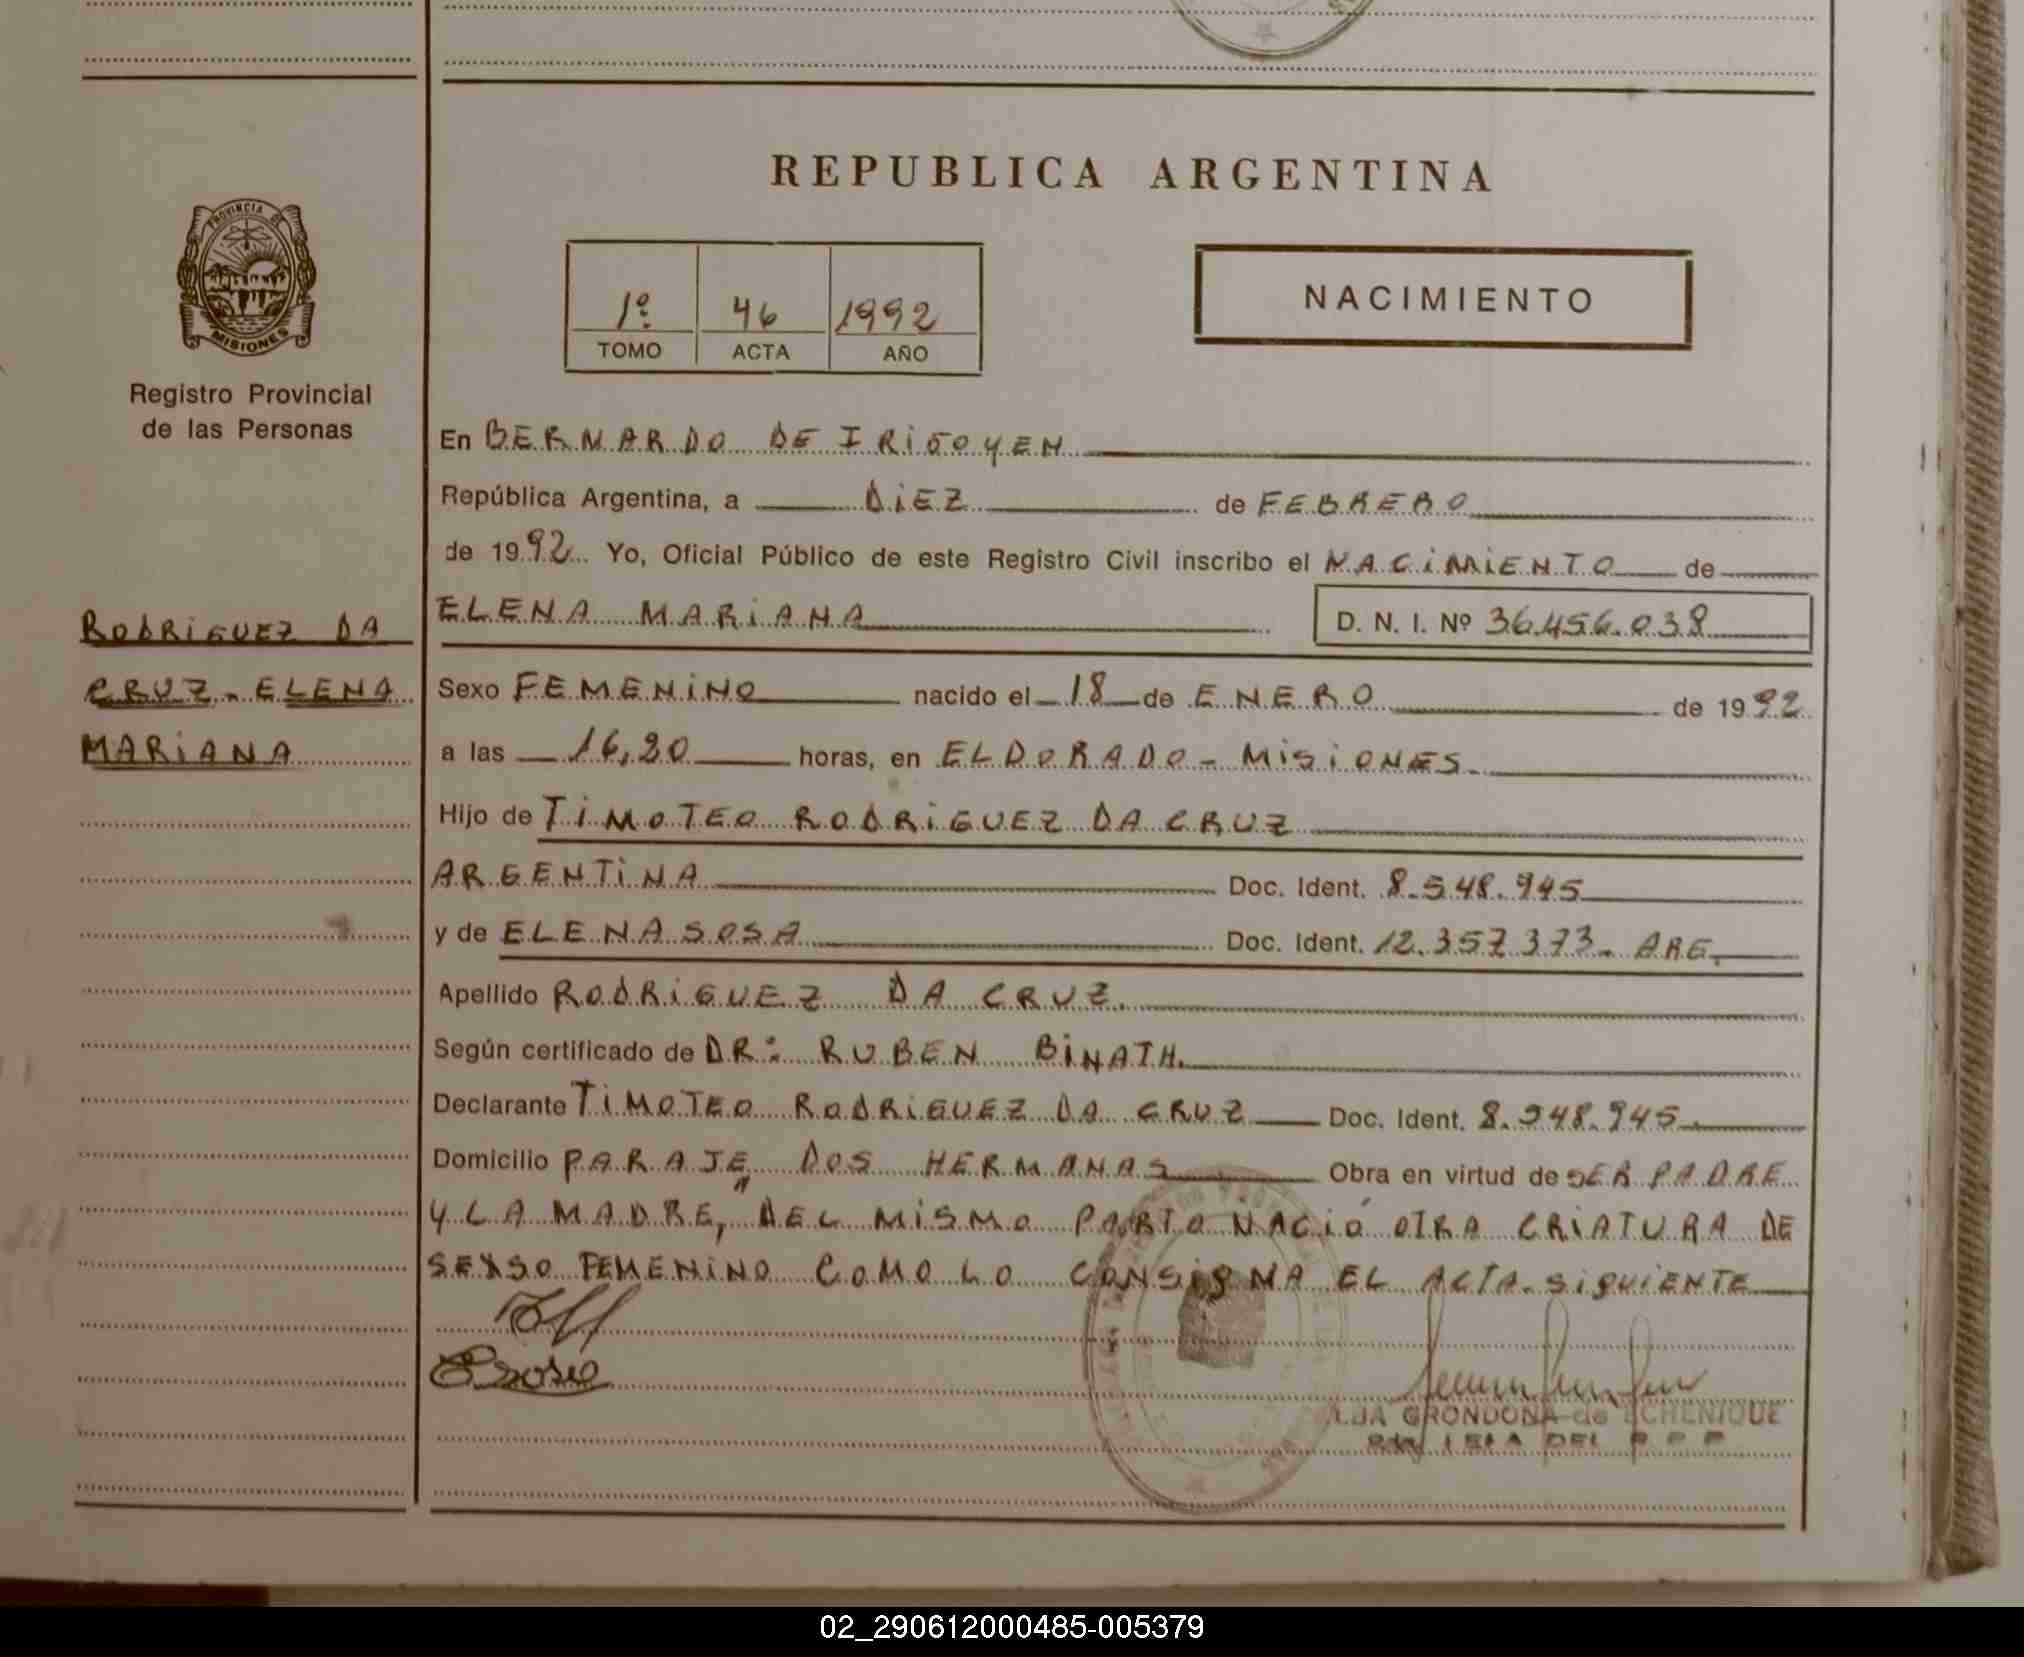 REPUBLICA ARGENTINA
PROVINCIA DE
MISIONES
Registro Provincial
de las Personas
1º 46 1992
TOMO ACTA AÑO
NACIMIENTO
En BERNARDO DE IRIGOYEN
República Argentina, a DIEZ de FEBRERO
de 1992 Yo, Oficial Público de este Registro Civil inscribo el NACIMIENTO de
ELENA MARIANA D. N. I. Nº 36.456.038
RODRIGUEZ DA
CRUZ - ELENA
MARIANA
Sexo FEMENINO nacido el 18 de ENERO de 1992
a las 16,20 horas, en ELDORADO - MISIONES.
Hijo de TIMOTEO RODRIGUEZ DA CRUZ
ARGENTINA Doc. Ident. 8.548.945
y de ELENA SOSA Doc. Ident. 12.357.373. ARG.
Apellido RODRIGUEZ DA CRUZ.
Según certificado de DR: RUBEN BINATH.
Declarante TIMOTEO RODRIGUEZ DA CRUZ Doc. Ident. 8.548.945.
Domicilio PARAJE DOS HERMANAS Obra en virtud de SER PADRE
Y LA MADRE, DEL MISMO PARTO NACIÓ OTRA CRIATURA DE
SEXSO FEMENINO COMO LO CONSIGNA EL ACTA SIGUIENTE
GRONDONA de ECHENIQUE
DEL
02_290612000485-005379